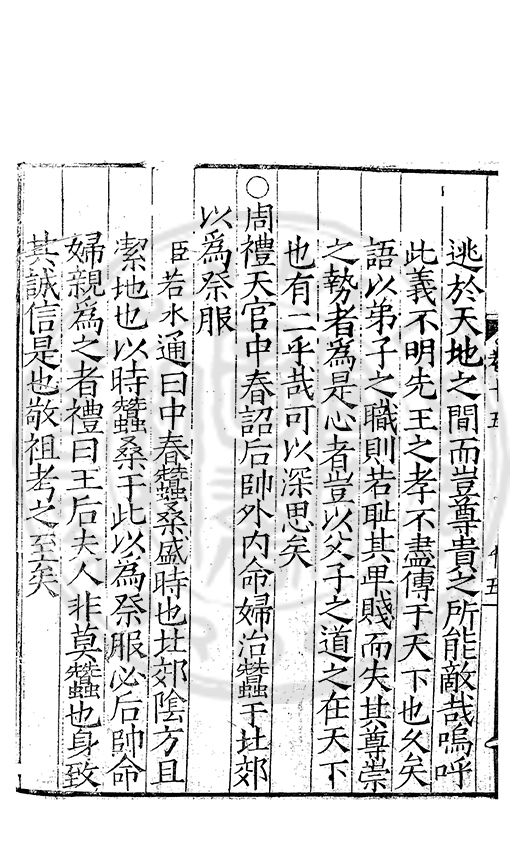 逃於天地之間而豈尊貴之所能敵哉嗚呼
此義不明先王之孝不盡傳于天下也久矣
語以弟子之職則若耻其卑賤而失其尊崇
之勢者爲是心者豈以父子之道之在天下
也有二乎哉可以深思矣
○周禮天官中春詔后帥外内命婦治蠶于北郊
以爲祭服
臣若水通曰中春蠶桑盛時也北郊陰方且
潔地也以時蠶桑于此以爲祭服必后帥命
婦親爲之者禮曰王后夫人非莫蠶也身致
其誠信是也敬祖考之至矣